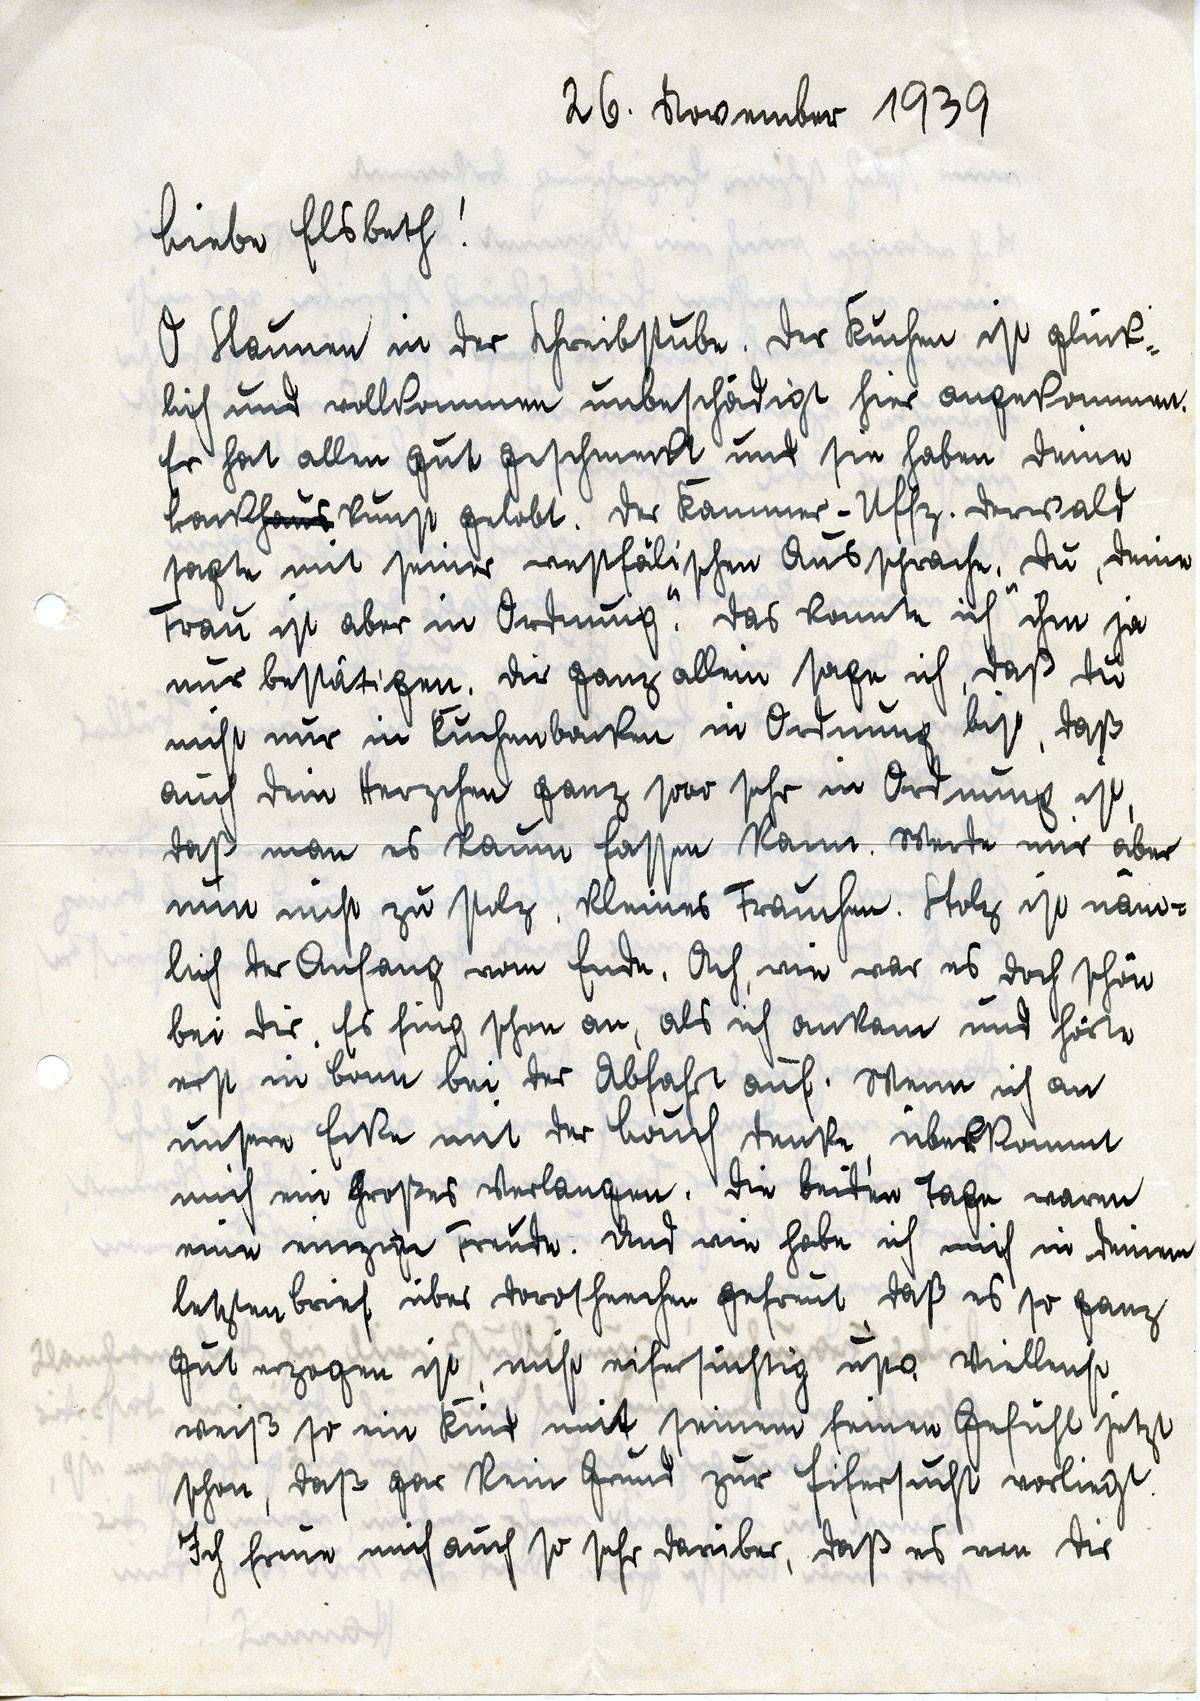 26. November 1939
Liebe Elsbeth!
O Staunen in der Schreibstube. Der Kuchen ist glück-
lich und vollkommen unbeschädigt hier angekommen.
Er hat allen gut geschmeckt und sie haben Deine
Backhauskunst gelobt. Der Kammer-Uffz. Derwald
sagte mit seiner westfälischen Aussprache. "Du, Deine
Frau ist aber in Ordnung". Das konnte ich ihm ja
nur bestätigen. Dir ganz allein sage ich, daß Du
nicht nur in Kuchenbacken in Ordnung bist, daß
auch Dein Herzchen ganz sooo sehr in Ordnung ist,
daß man es kaum fassen kann. Werde mir aber
nun nicht zu stolz, kleines Frauchen. Stolz ist näm-
lich der Anfang vom Ende. Ach, wie war es doch schön
bei Dir. Es fing schon an, als ich ankam und hörte
erst in Bonn bei der Abfahrt auf. Wenn ich an
unsere Ecke mit der Couch denke, überkommt
mich ein großes Verlangen. Die beiden Tage waren
eine einzige Freude. Und wie habe ich mich in Deinem
letzten Brief über Dorotheechen gefreut, daß es so ganz
gut erzogen ist, nicht eifersüchtig usw. Vielleicht
weiß so ein Kind mit seinem feinen Gefühl jetzt
schon, daß gar kein Grund zur Eifersucht vorliegt.
Ich freue mich auch so sehr darüber, daß es von Dir